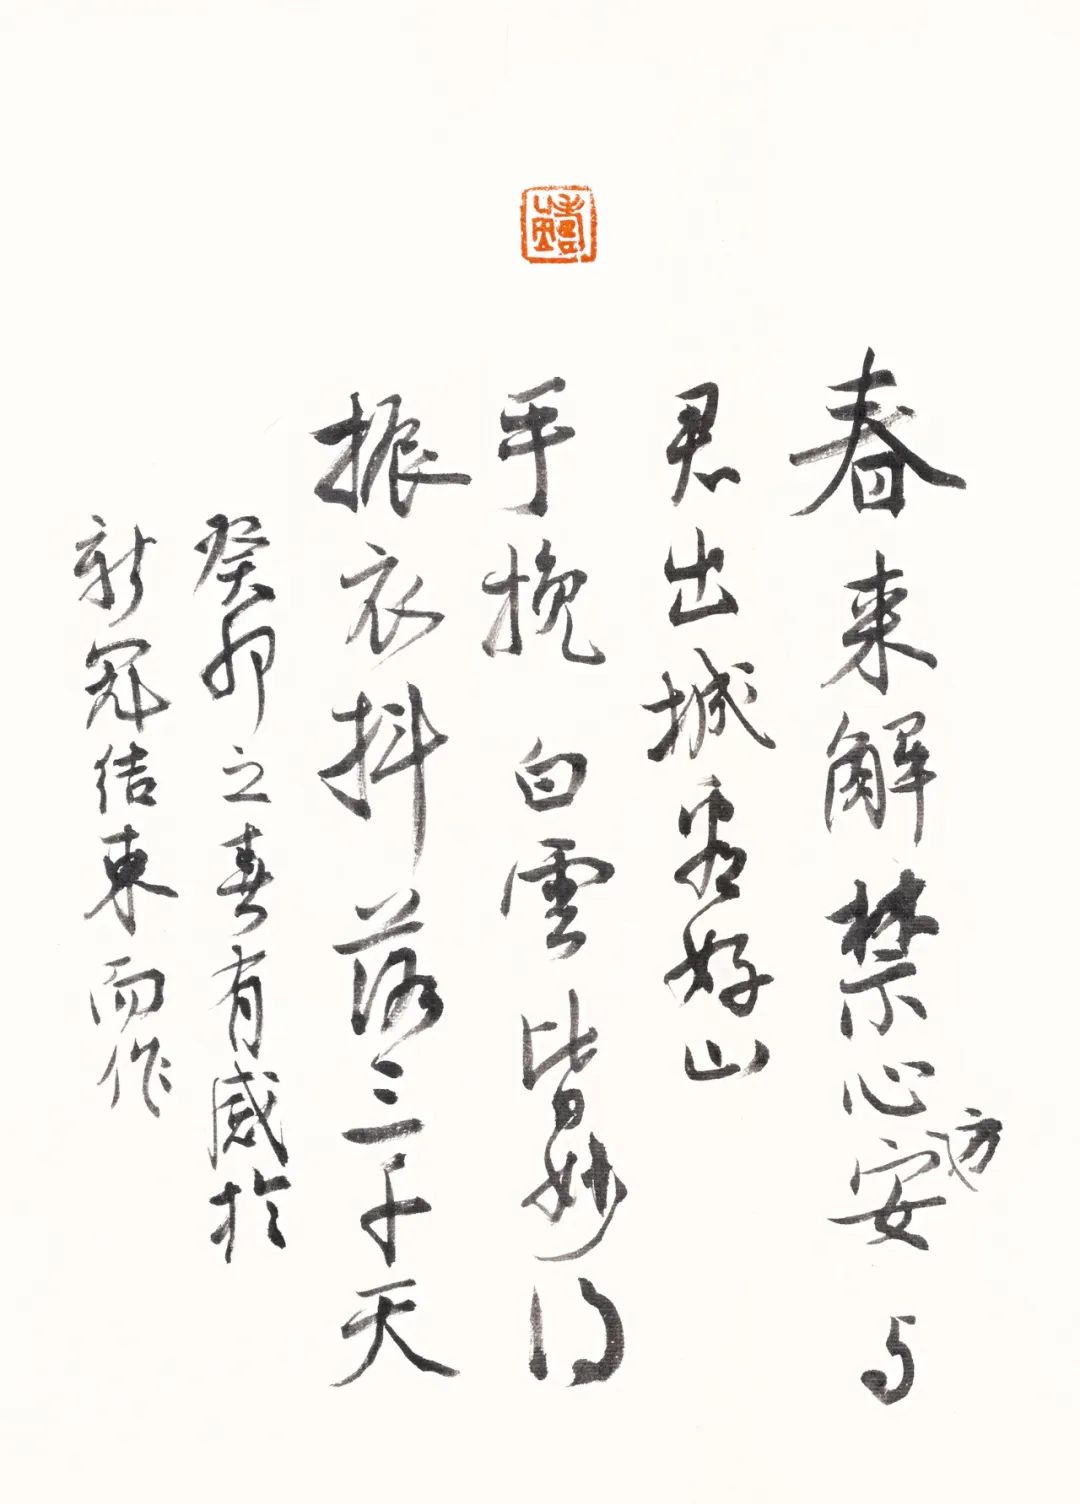 春来解禁心方安与
君出城看好山
手挽白雲皆妙得
振衣抖落三千天
癸卯之春有感於
新冠结束而作